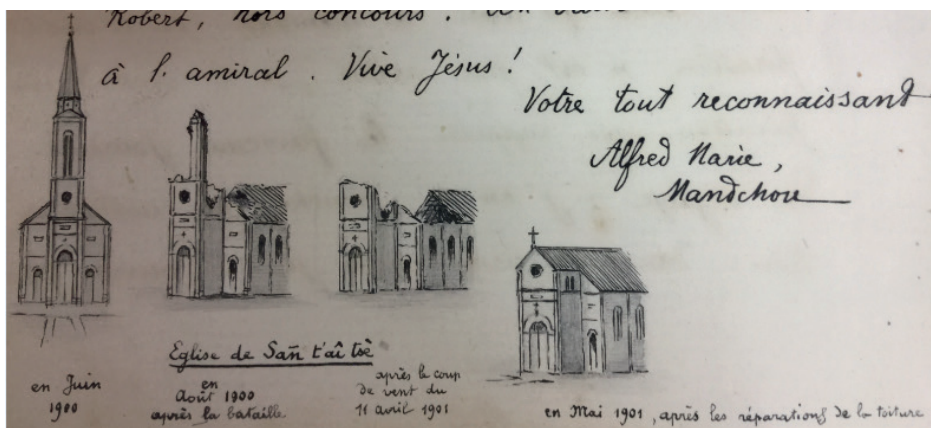 Robert, hors concours. Un
à l'amiral. Vive Jésus!
Votre tout reconnaissant
Alfred Marie,
Mandchou
Eglise de Sañ t'aî tsè
en Juin
1900
en
Août 1900
après la bataille
après le coup
de vent du
11 avril 1901
en Mai 1901, après les réparations de la toiture